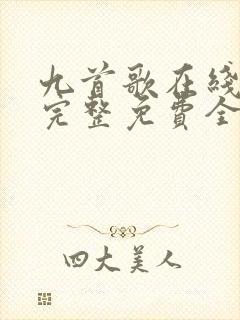 九首歌在线
完整免費全
四大美人